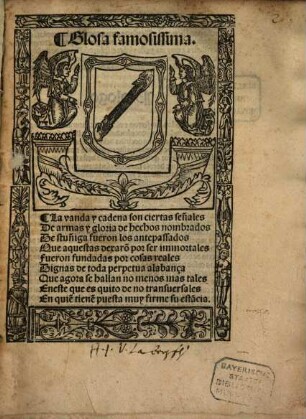 ¶Glosa famosissima.
¶La vanda y cadena son ciertas señales
De armas y gloria de hechos nombrados
De stuñiga fueron los antepassados
Que aquestas dexarõ por ser inmortales
Fueron fundadas por cosas reales
Dignas de toda perpetua alabança
Que agora se hallan no menos mas tales
Eneste que es quito de no transuersales
En quiẽ tienẽ puesta muy firme su estãcia.
BAYERISCHE
STAATS-
BIBLIOTHEK